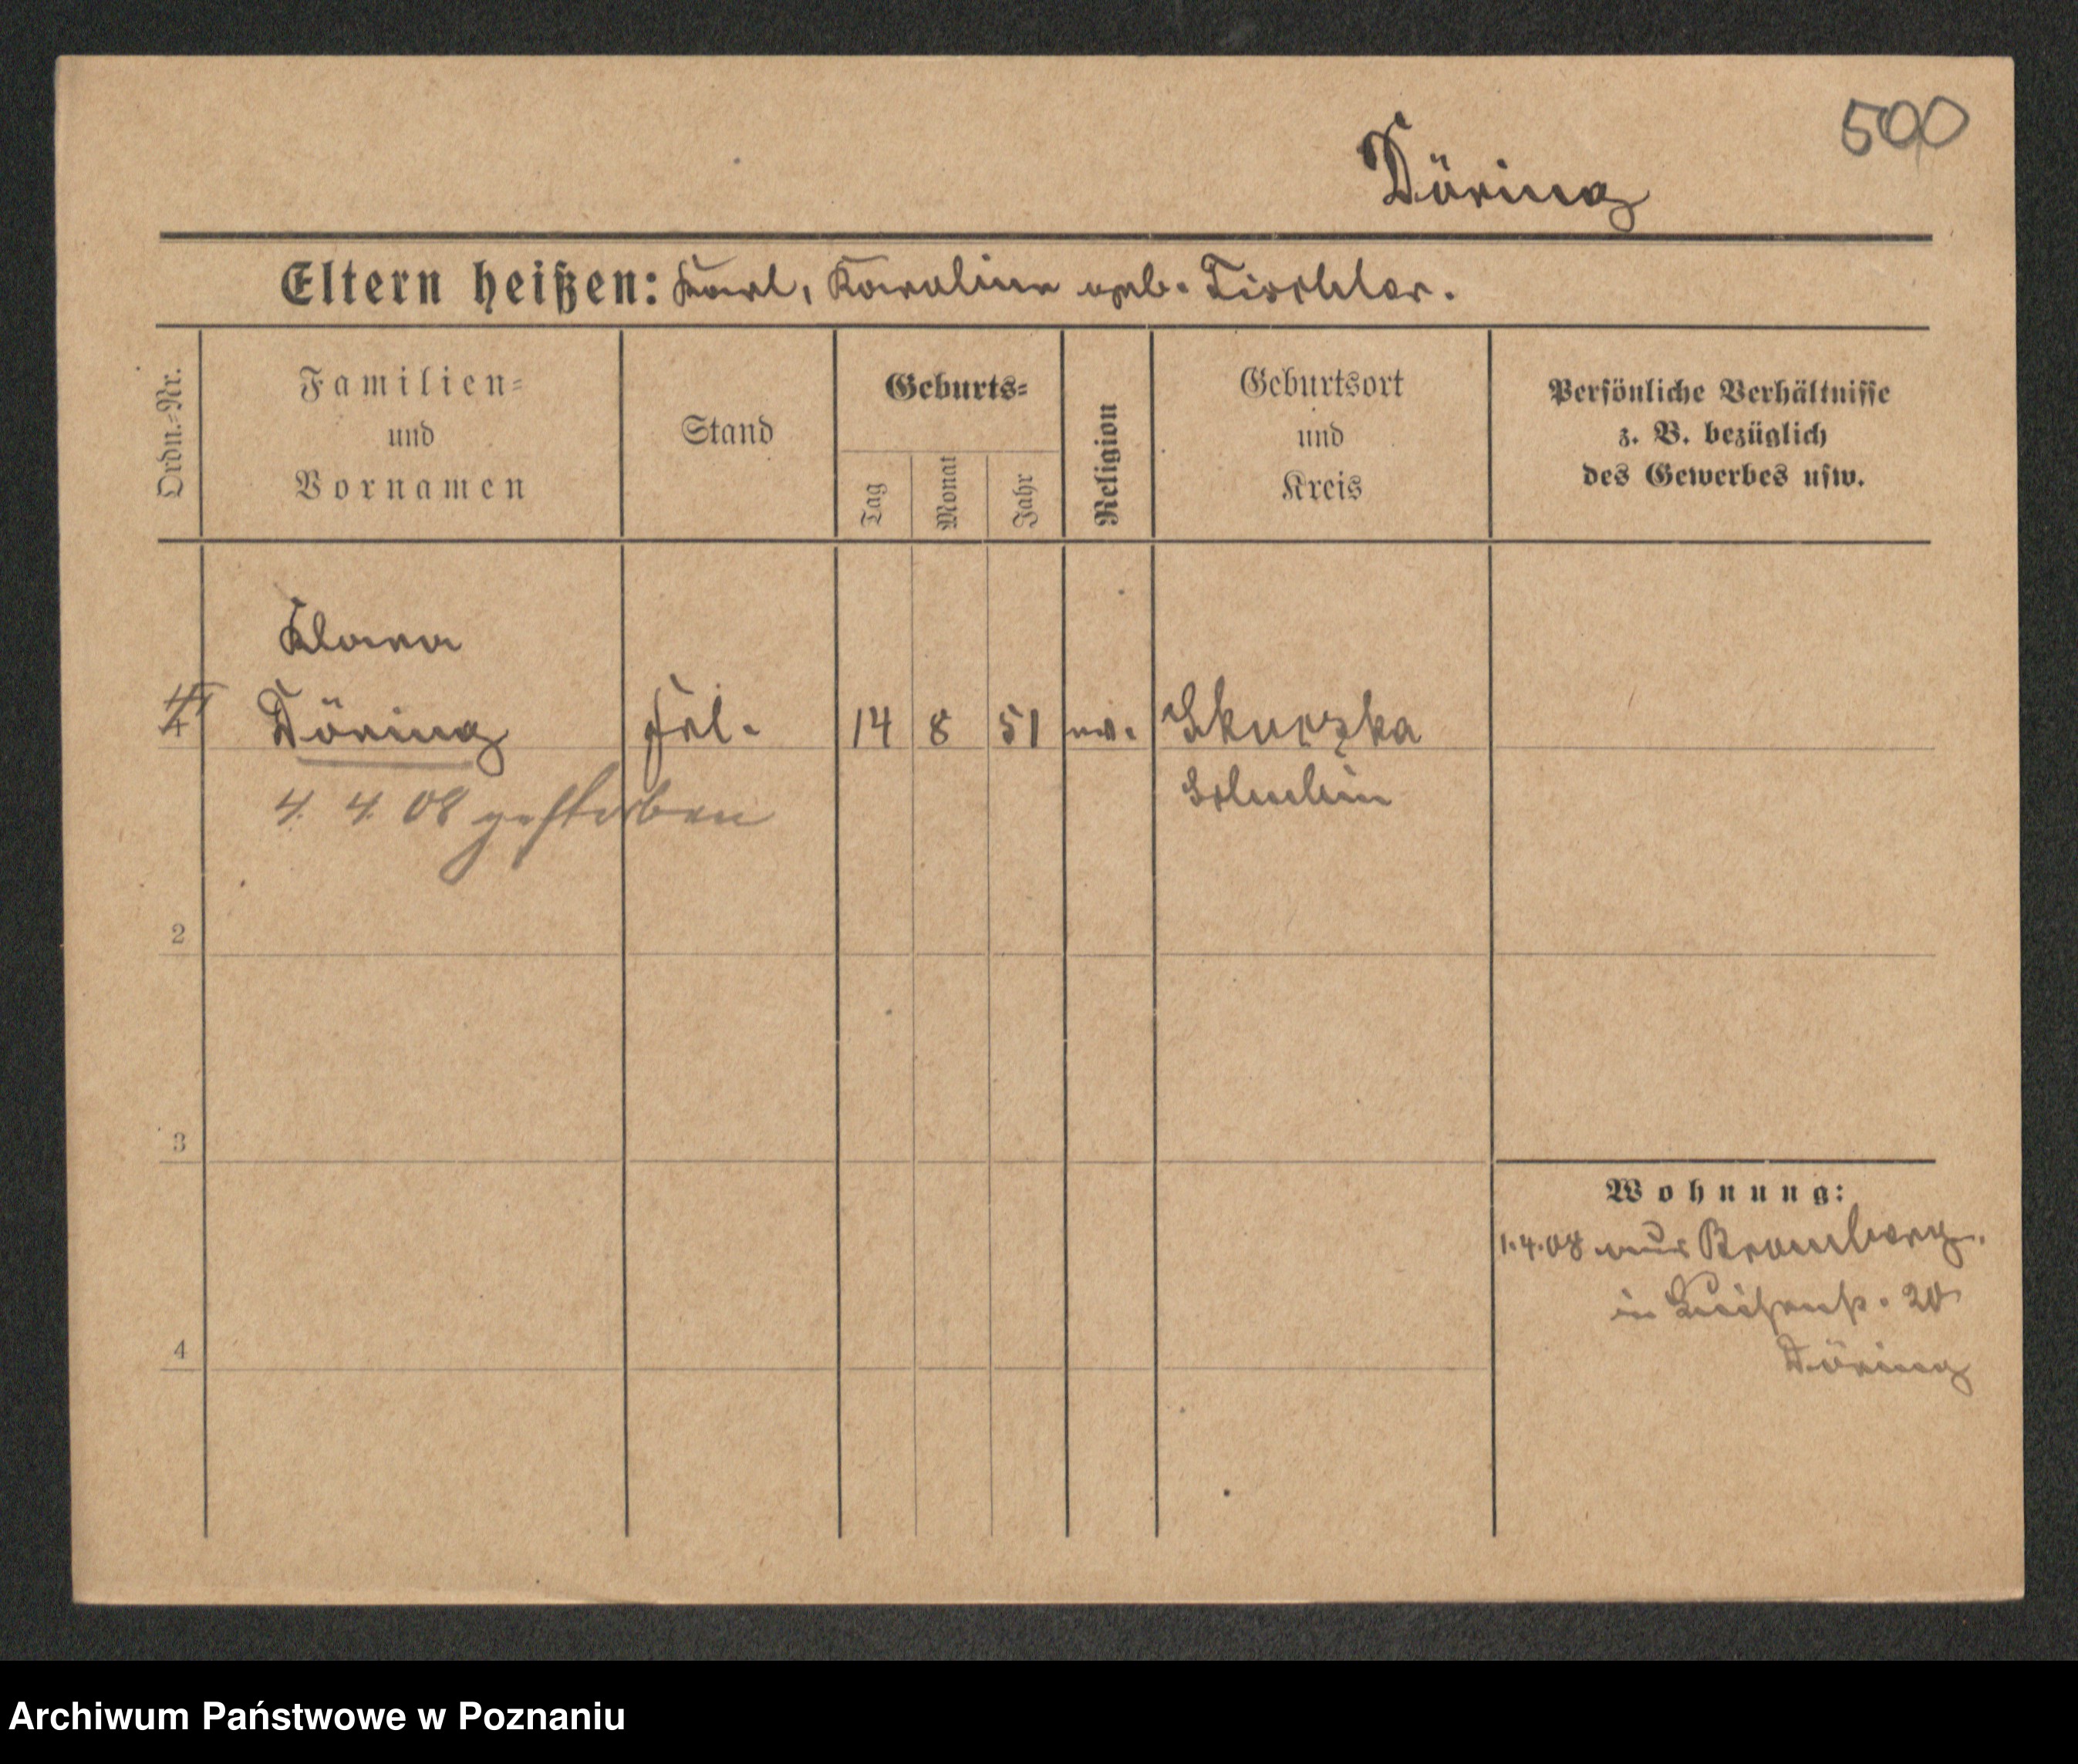 500
Döring
Eltern heißen: Karl, Karoline geb. Tischler.
Ordn.=Nr.
Familien=
und
Vornamen
Stand
Geburts=
Tag
Monat
Jahr
Religion
Geburtsort
und
Kreis
Persönliche Verhältnisse
z. B. bezüglich
des Gewerbes usw.
Klara
Döring Frl. 14 8 51 ev.
Schubin
4. 4. 08 gestorben
2
3
4
Wohnung:
1.4.08 aus Bromberg.
in Luisenstr. 20
Döring
Archiwum Państwowe w Poznaniu